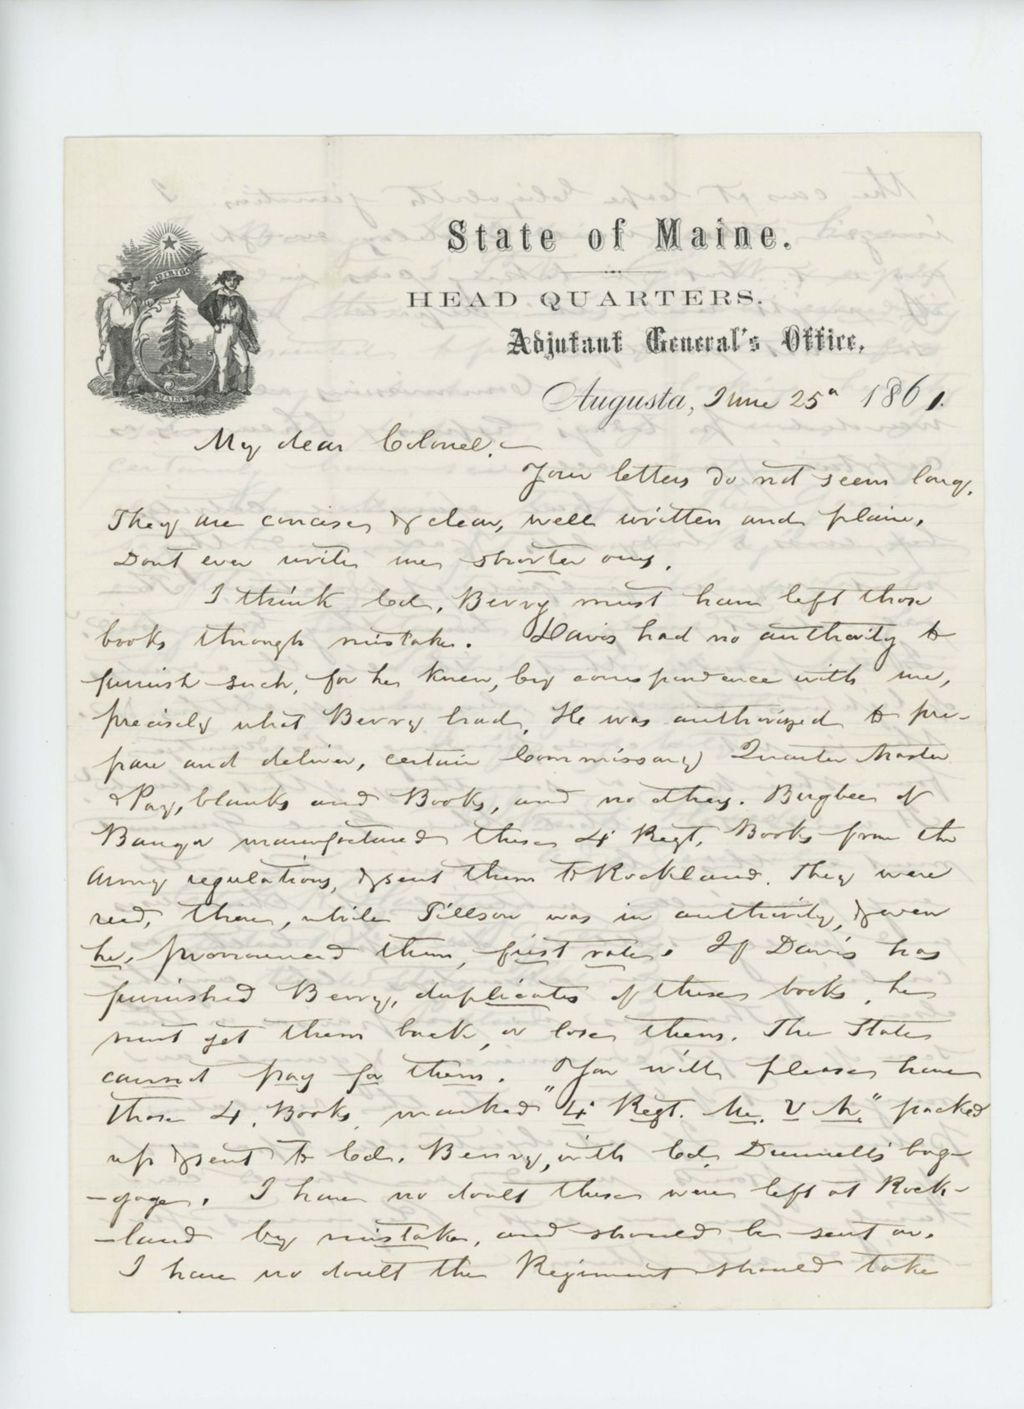 State of Maine.
HEAD QUARTERS.
Adjutant General's Office,
DIRIGO
MAINE
Augusta, June 25th 1861.
My dear Colonel,—
Your letters do not seem long.
They are concise, & clear, well written and plain.
Dont ever write me shorter ones.
I think Col. Berry must have left those
books through mistake. Davis had no authority to
furnish such, for he knew, by correspondence with me,
precisely what Berry had. He was authorized to pre-
pare and deliver, certain Commissary, Quarter Master
& Pay, blanks and Books, and no others. Bugbee of
Bangor manufactured these 4 Regt. Books from the
Army regulations, & sent them to Rockland. They were
recd, there, while Tillson was in authority, & even
he, pronounced them, first rate. If Davis has
furnished Berry, duplicates of these books, he
must get them back, or lose them. The State
cannot pay for them. You will please have
those 4. Books, marked "4. Regt. Me. V. M." packed
up & sent to Col. Berry, with Col. Dunnell's bag-
-gage. I have no doubt these were left at Rock-
-land by mistake, and should be sent on.
I have no doubt the Regiment should take